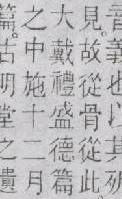 音義也以其
見。故從骨從此
大戴禮盛德篇
之中施十二月
篇。古明堂之遺